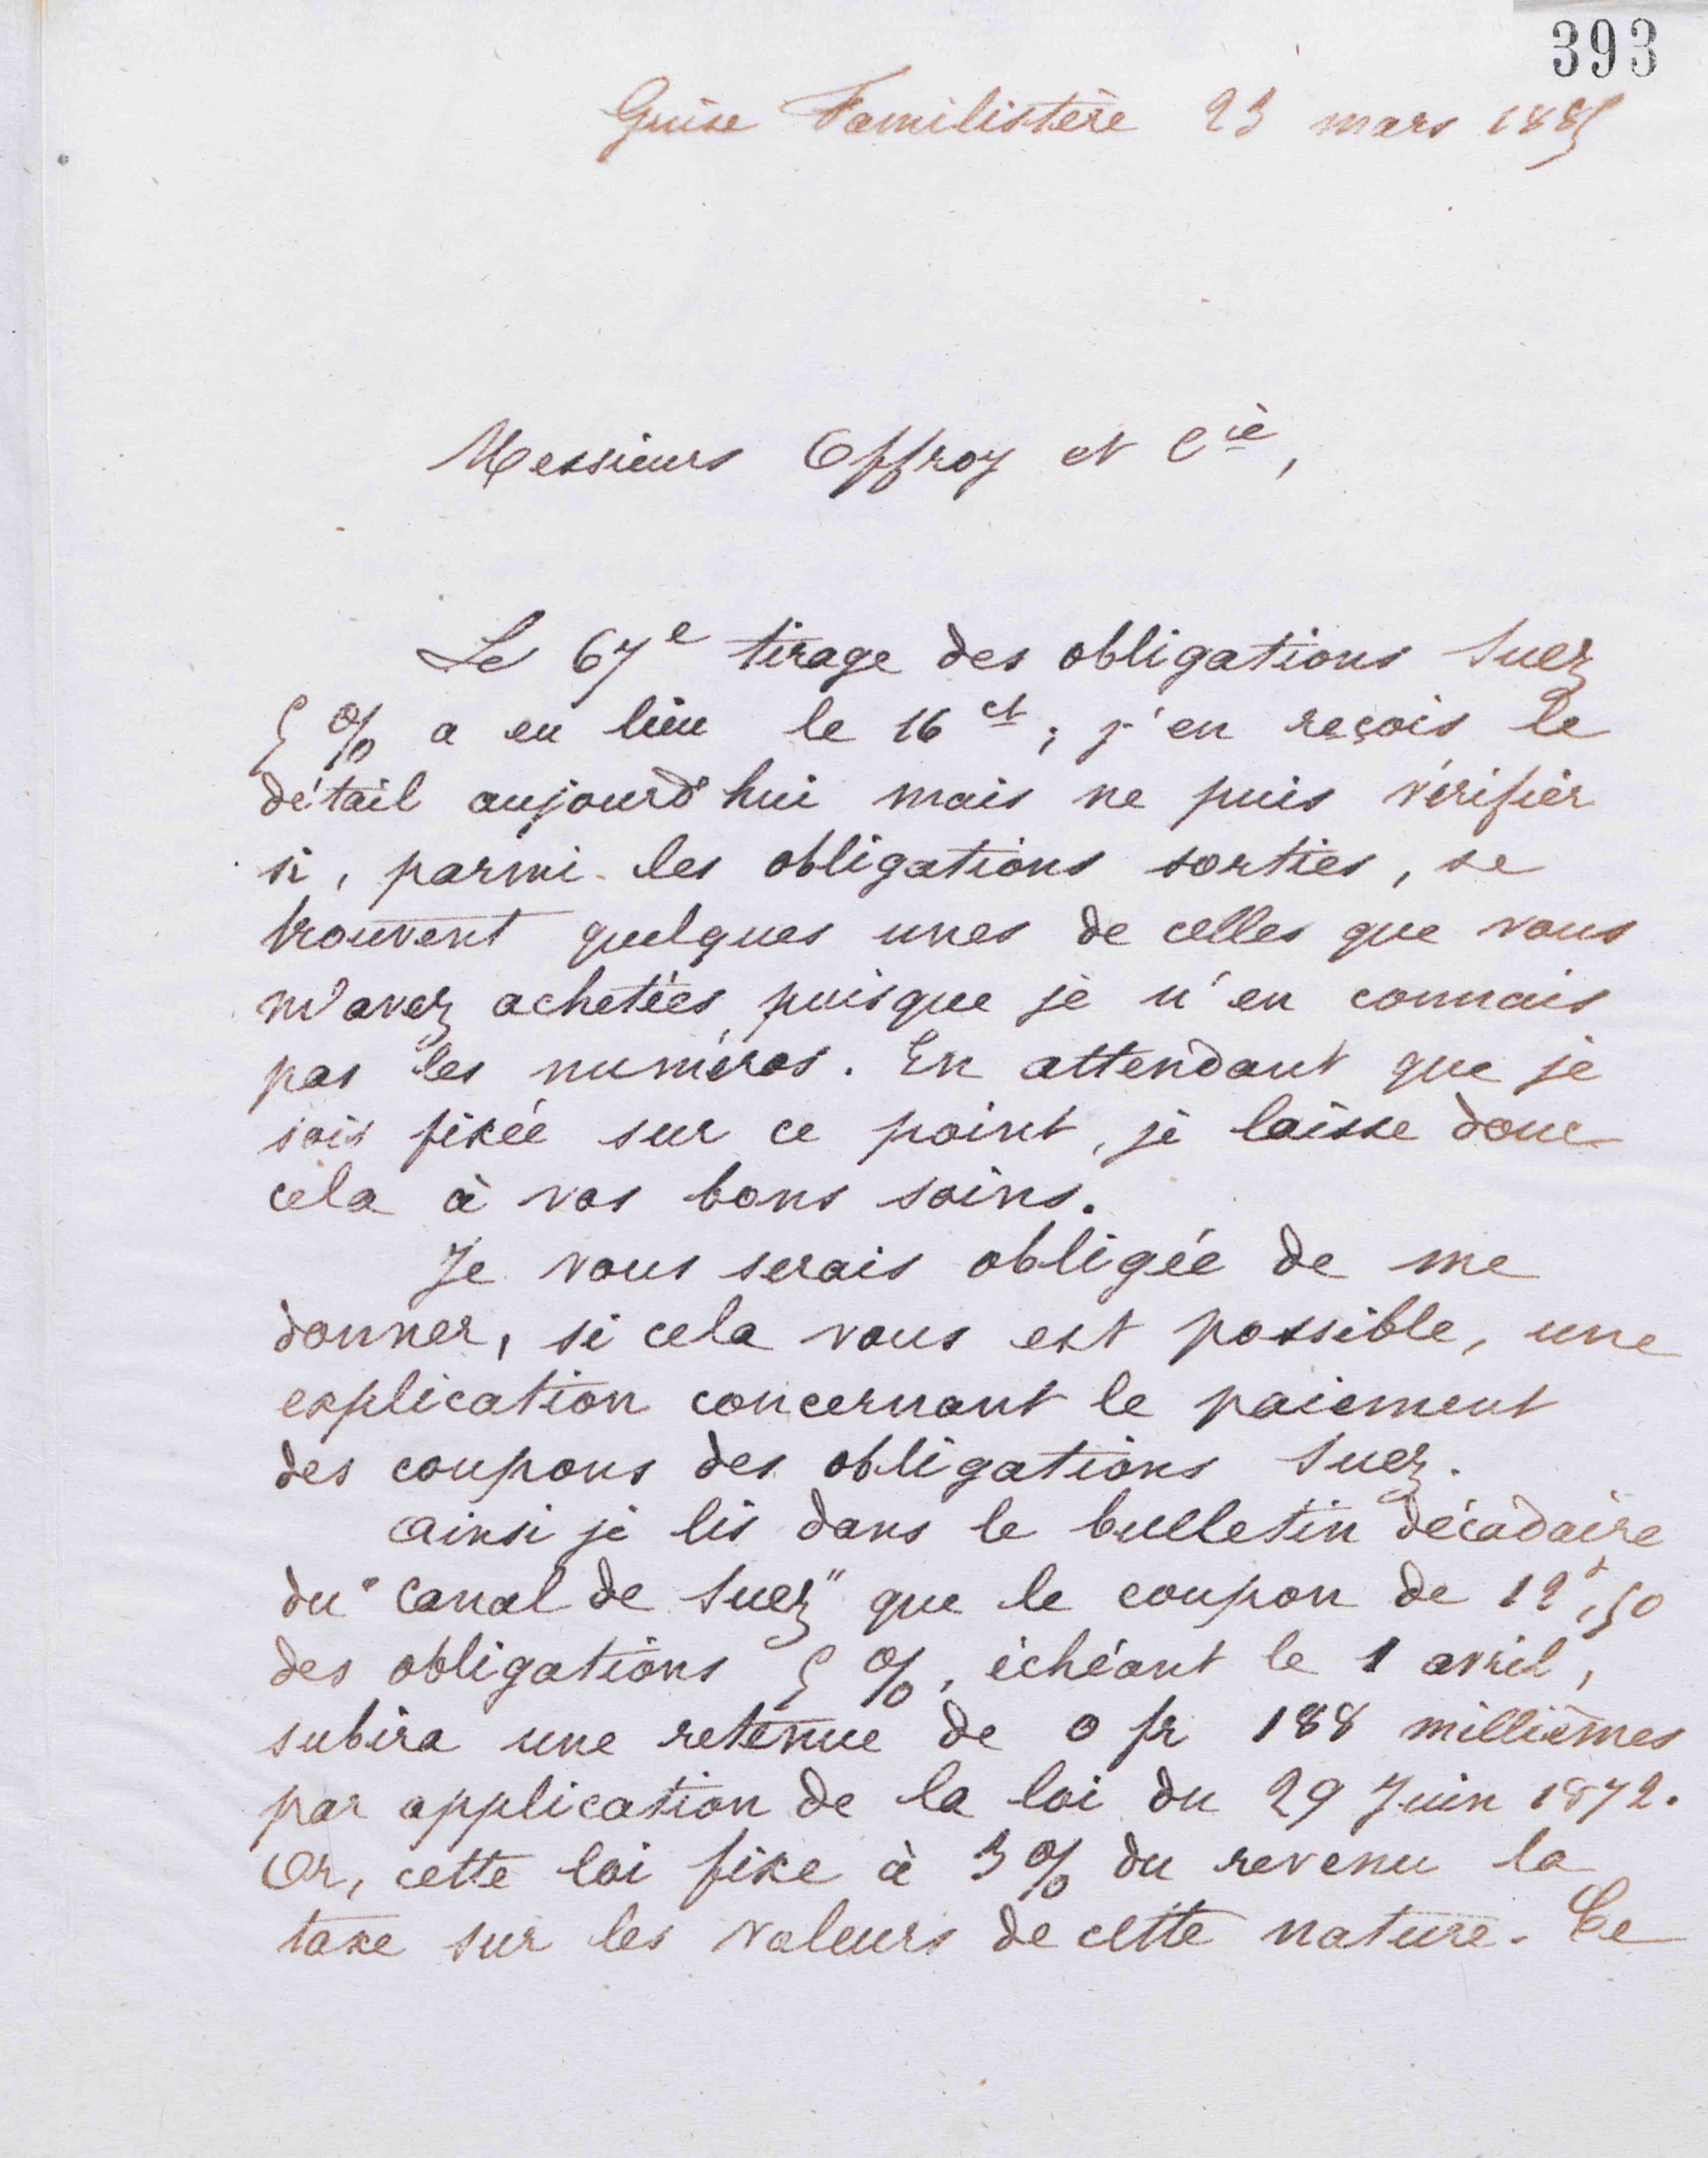 393
Guise Familistère 23 mars 1885
Messieurs Offroy et Cie,
Le 67e tirage des obligations Suez
5 % a eu lieu le 16 ct ; j'en reçois le
détail aujourd'hui mais ne puis vérifier
si, parmi les obligations sorties, se
trouvent quelques unes de celles que vous
m'avez achetées, puisque je n'en connais
pas les numéros. En attendant que je
sois fixée sur ce point, je laisse donc
cela à vos bons soins.
Je vous serais obligée de me
donner, si cela vous est possible, une
explication concernant le paiement
des coupons des obligations Suez.
Ainsi je lis dans le bulletin décadaire
du "Canal de Suez" que le coupon de 12f,50
des obligations 5 %, échéant le 1 avril,
subira une retenue de 0 fr 188 millièmes
par application de la loi du 29 Juin 1872.
Or, cette loi fixe à 3 % du revenu la
taxe sur les valeurs de cette nature. Ce